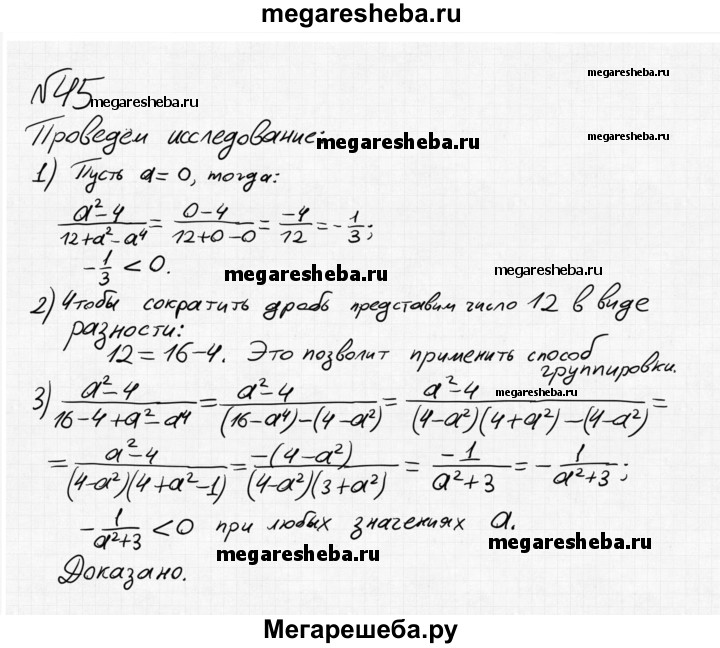 megaresheba.ru
№45 megaresheba.ru
megaresheba.ru
Проведём исследование: megaresheba.ru
1) Пусть a=0, тогда:
(a²-4)/(12+a²-a⁴) = (0-4)/(12+0-0) = (-4)/12 = -1/3;
-1/3 < 0.
megaresheba.ru
megaresheba.ru
2) Чтобы сократить дробь представим число 12 в виде
разности:
12=16-4. Это позволит применить способ
группировки.
megaresheba.ru
3) (a²-4)/(16-4+a²-a⁴) = (a²-4)/((16-a⁴)-(4-a²)) = (a²-4)/((4-a²)(4+a²)-(4-a²)) =
= (a²-4)/((4-a²)(4+a²-1)) = (-(4-a²))/((4-a²)(3+a²)) = (-1)/(a²+3) = -1/(a²+3);
-1/(a²+3) < 0 при любых значениях a.
megaresheba.ru
megaresheba.ru
Доказано.
Мегарешеба.ру